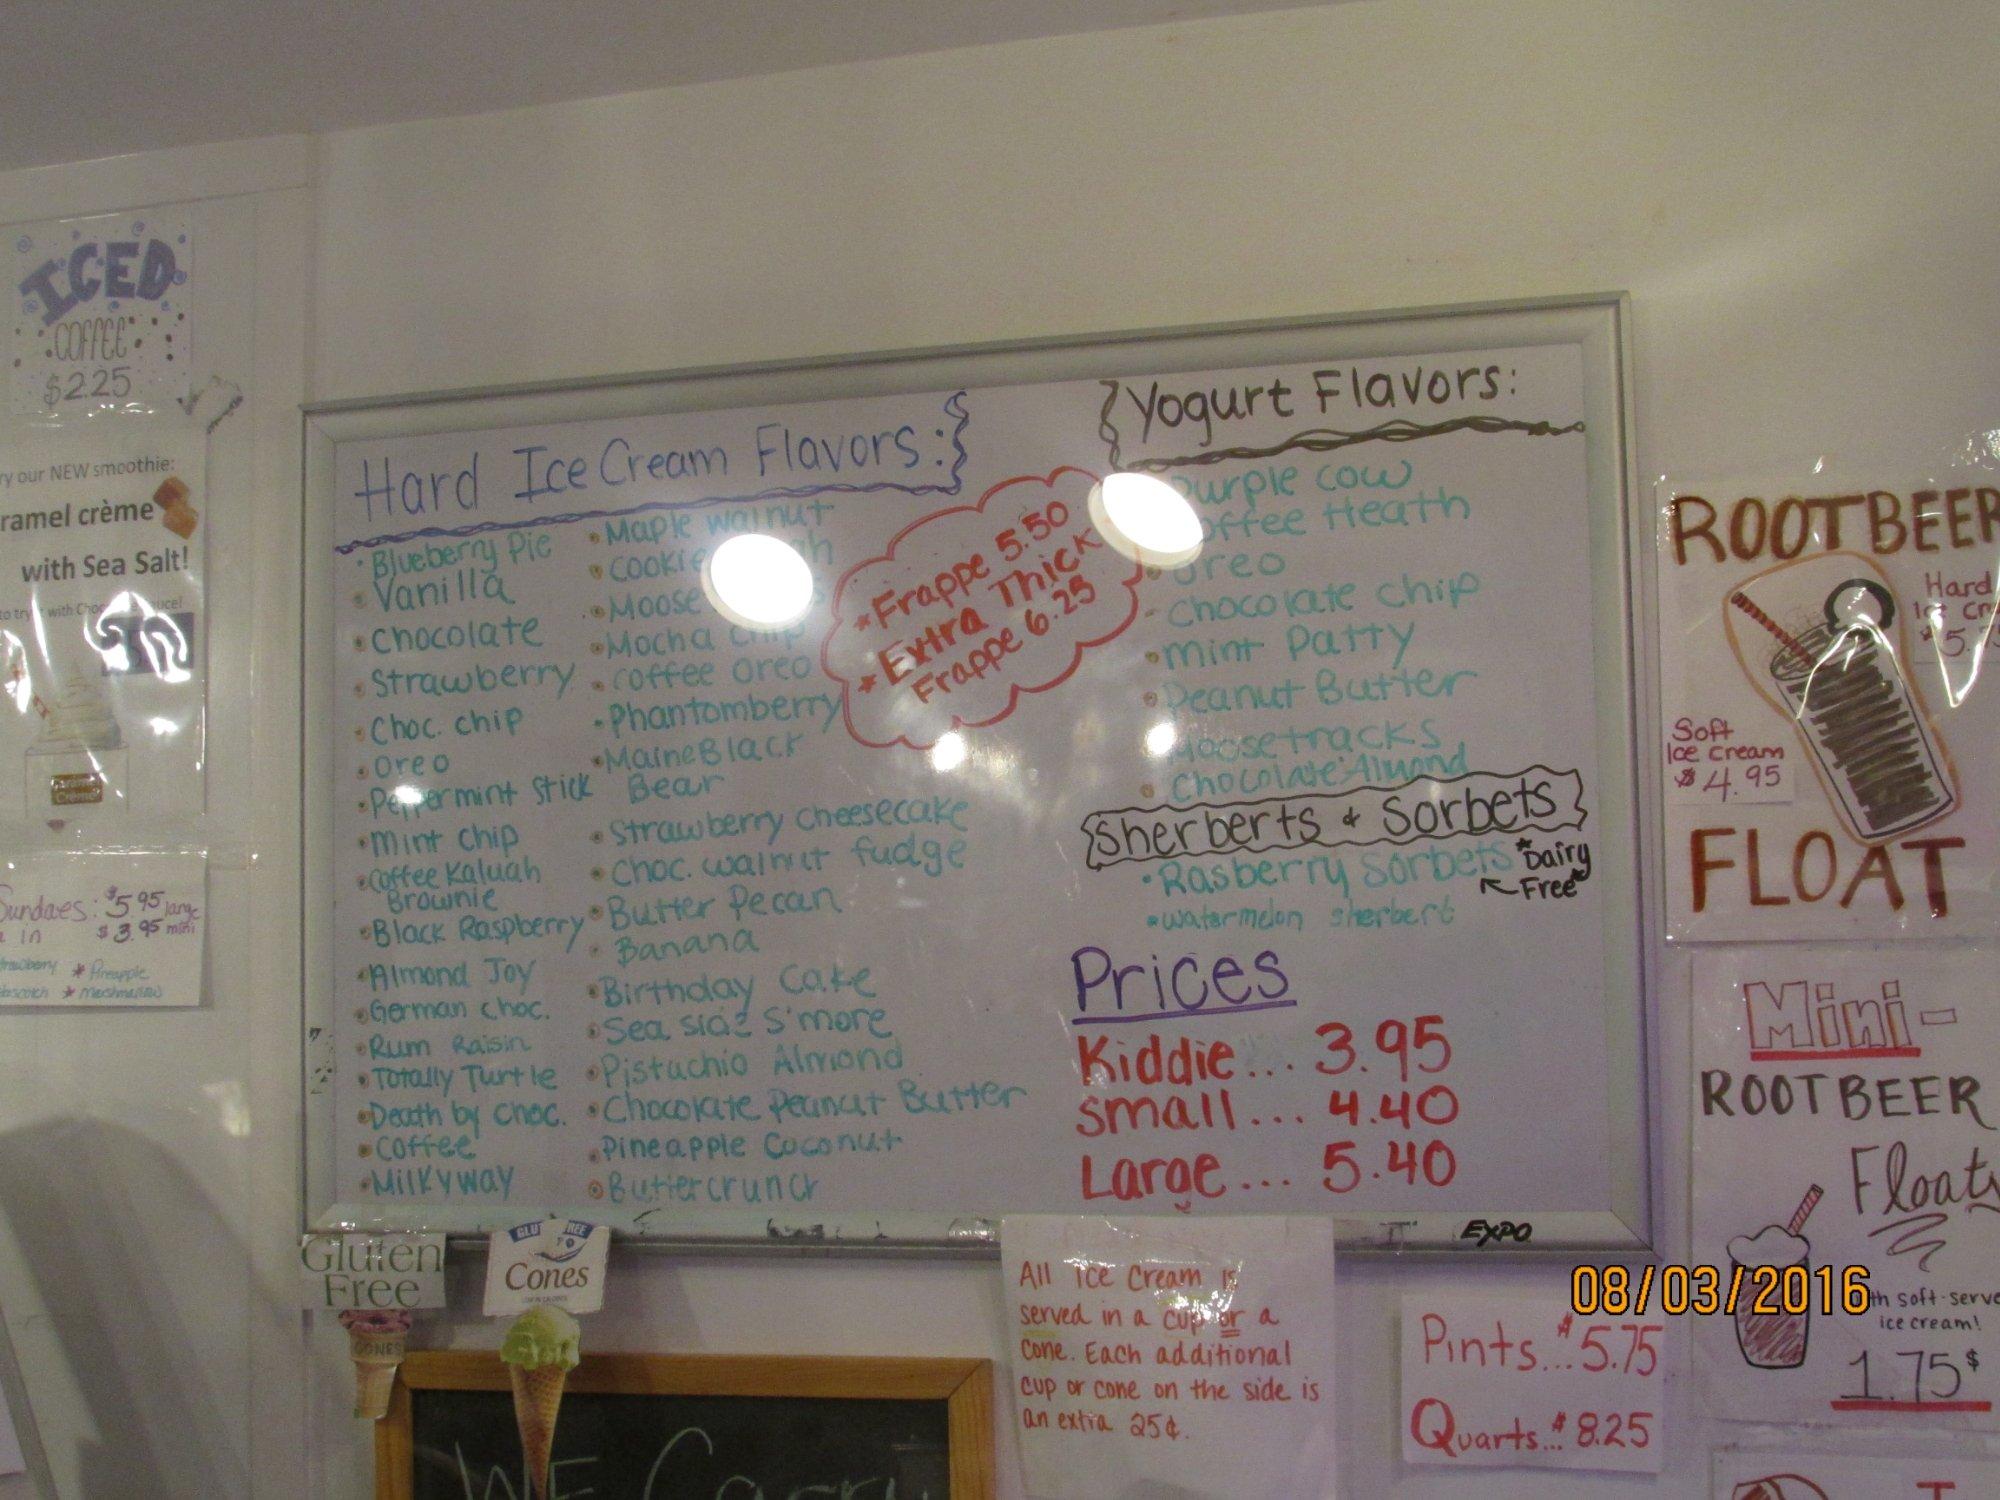 ICED
COFFEE
$2.25
our NEW smoothie:
crème
with Sea Salt!
Sundaes: $5.95 large
in $3.95 mini
* Pineapple
* Marshmallow
Hard Ice Cream Flavors:
• Blueberry Pie
• Vanilla
• Chocolate
• Strawberry
• Choc. chip
• Oreo
• Peppermint Stick
• Mint chip
• Coffee Kaluah
Brownie
• Black Raspberry
• Almond Joy
• German Choc.
• Rum Raisin
• Totally Turtle
• Death by Choc.
• Coffee
• Milkyway
• Maple walnut
• Cookie
• Moose
• Mocha Chip
• Coffee Oreo
• Phantomberry
• Maine Black
Bear
• Strawberry cheesecake
• Choc. walnut fudge
• Butter Pecan
• Banana
• Birthday Cake
• Sea side S'more
• Pistachio Almond
• Chocolate Peanut Butter
• Pineapple Coconut
• Buttercrunch
* Frappe 5.50
* Extra Thick
Frappe 6.25
Yogurt Flavors:
Purple cow
Coffee Heath
• Oreo
• Chocolate chip
• Mint Patty
• Peanut Butter
Moosetracks
• Chocolate Almond
Sherberts & Sorbets
• Rasberry Sorbets *Dairy
Free*
• watermelon sherbert
Prices
Kiddie... 3.95
Small... 4.40
Large... 5.40
EXPO
Gluten
Free
CONES
Cones
WE Carry
All ice cream is
served in a cup or a
cone. Each additional
cup or cone on the side is
an extra 25¢.
Pints...$5.75
Quarts...$8.25
ROOTBEER
Hard
Soft
Ice cream
$4.95
FLOAT
Mini-
ROOTBEER
Floats
soft-serve
ice cream!
1.75$
08/03/2016